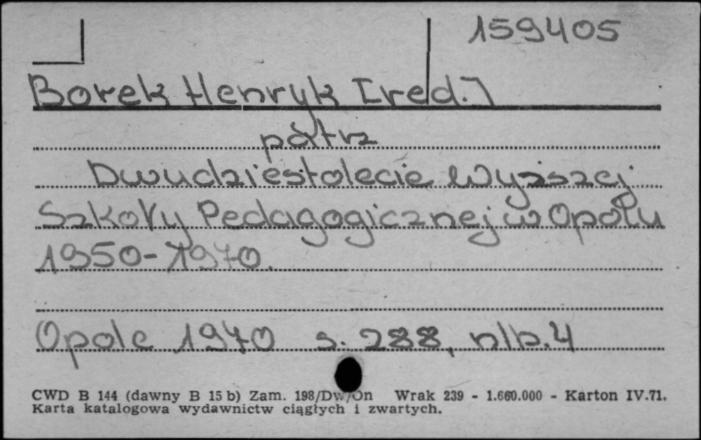 159405
Borek Henryk [red.]
patrz
Dwudziestolecie Wyższej
Szkoły Pedagogicznej w Opolu
1950-1970.
Opole 1970 s. 288, nlb. 4
CWD B 144 (dawny B 15 b) Zam. 198/Dw/On Wrak 239 - 1.660.000 - Karton IV.71.
Karta katalogowa wydawnictw ciągłych i zwartych.